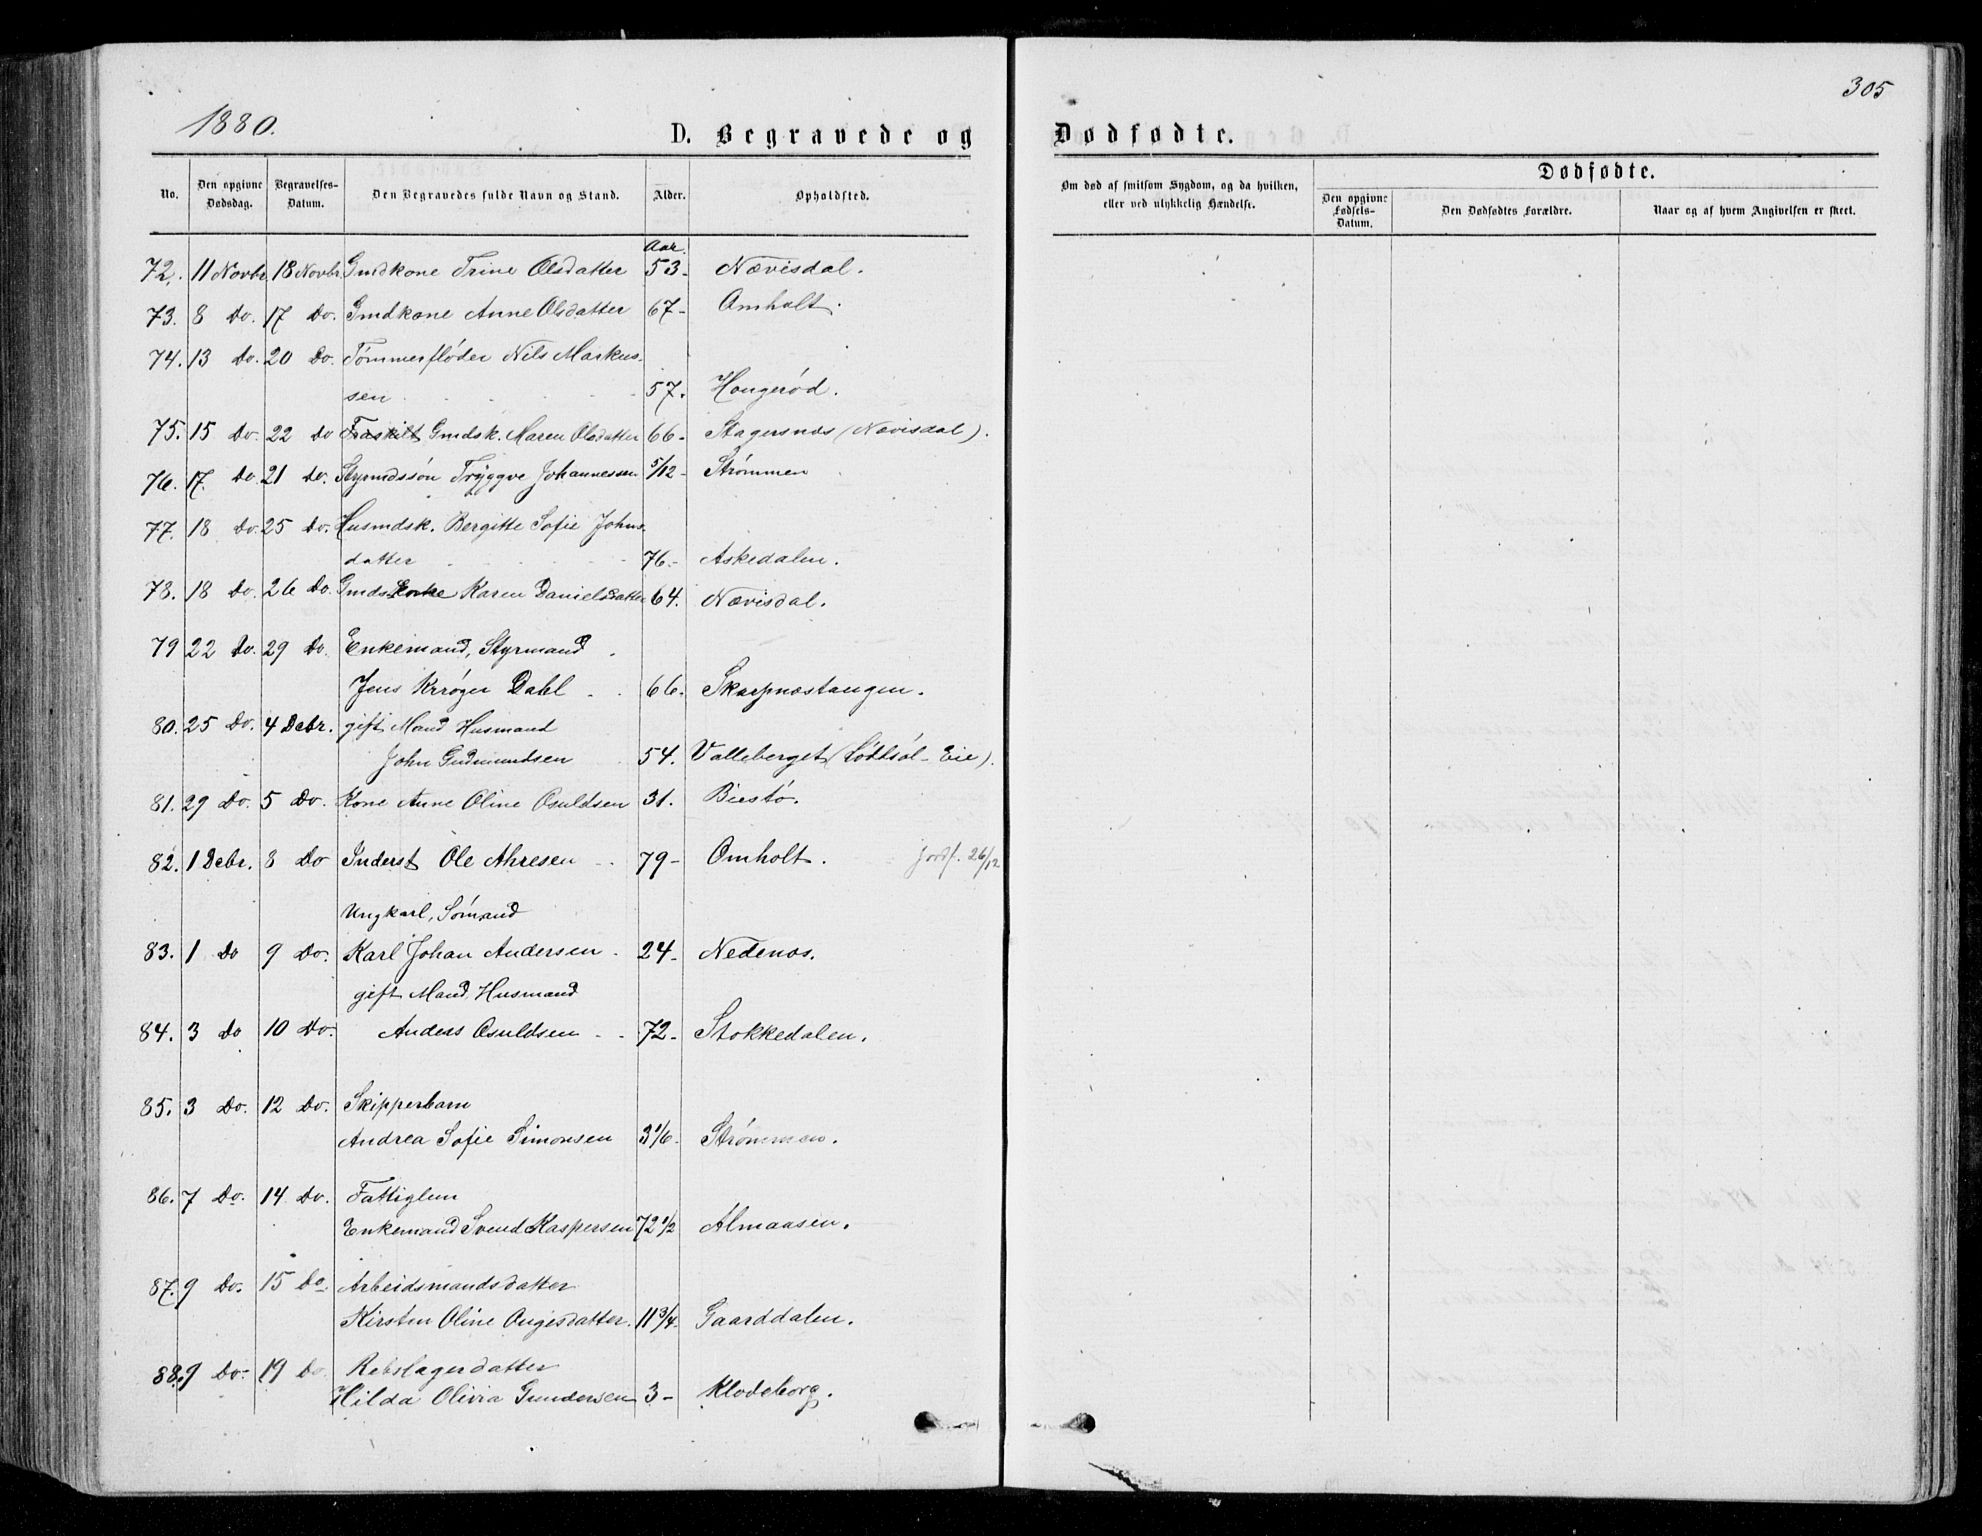 305
1880.
D. Begravede og Dødfødte.
No. Den opgivne Dødsdag. Begravelses-Datum. Den Begravedes fulde Navn og Stand. Alder. Opholdsted.
Om død af smitsom Sygdom, og da hvilken, eller ved ulykkelig Hændelse.
Dødfødte.
Den opgivne Fødsels-Datum. Den Dødfødtes Forældre. Naar og af hvem Angivelsen er skeet.
Aar
72. 11 Novbr 18 Novbr. Gmdkone Trine Olsdatter 53- Nævisdal.
73. 8 Do. 17 Do. Gmdkone Anne Olsdatter 67- Omholt.
74. 13 Do. 20 Do. Tømmerfløder Nils Markus-
sen 57. Hougerød.
75. 15 Do. 22 Do Fraskilt Gmdsk. Maren Olsdatter 66- Stagersnæs (Nævisdal).
76. 17. Do 21 Do. Styrmdssøn Tryggve Johannessen 5/12- Strømmen
77. 18 Do. 25 Do. Husmdsk. Bergitte Sofie Johns-
datter 76- Askedalen.
78. 18 Do. 26 Do. Gmds Enke Karen Danielsdatter 64. Nævisdal.
79 22 Do. 29 Do. Enkemand, Styrmand
Jens Krøger Dahl 66. Skarpnæstangen.
80. 25 Do. 4 Debr. gift Mand Husmand
John Gudmundsen 54. Valleberget (Løddesøl- Eie).
81. 29 Do. 5 Do. Kone Anne Oline Osuldsen 31. Biestø.
82. 1 Debr. 8 Do Inderst Ole Ahresen 79- Omholt. Jordf. 26/12
Ungkarl, Sømand
83. 1 Do 9 Do. Karl Johan Andersen 24- Nedenæs.
gift Mand, Husmand
84. 3 Do 10 Do. Anders Osuldsen 72- Stokkedalen.
85. 3 Do. 12 Do. Skipperbarn
Andrea Sofie Simonsen 3 1/6- Strømmen.
86. 7 Do. 14 Do. Fattiglem
Enkemand Svend Kaspersen 72 1/2 Almaasen.
87. 9 Do. 15 Do Arbeidsmandsdatter
Kirsten Oline Augesdatter. 11 3/4. Gaarddalen.
88. 9 Do- 19 Do. Rebslagerdatter
Hilda Olivia Gundersen 3- Klodeborg.